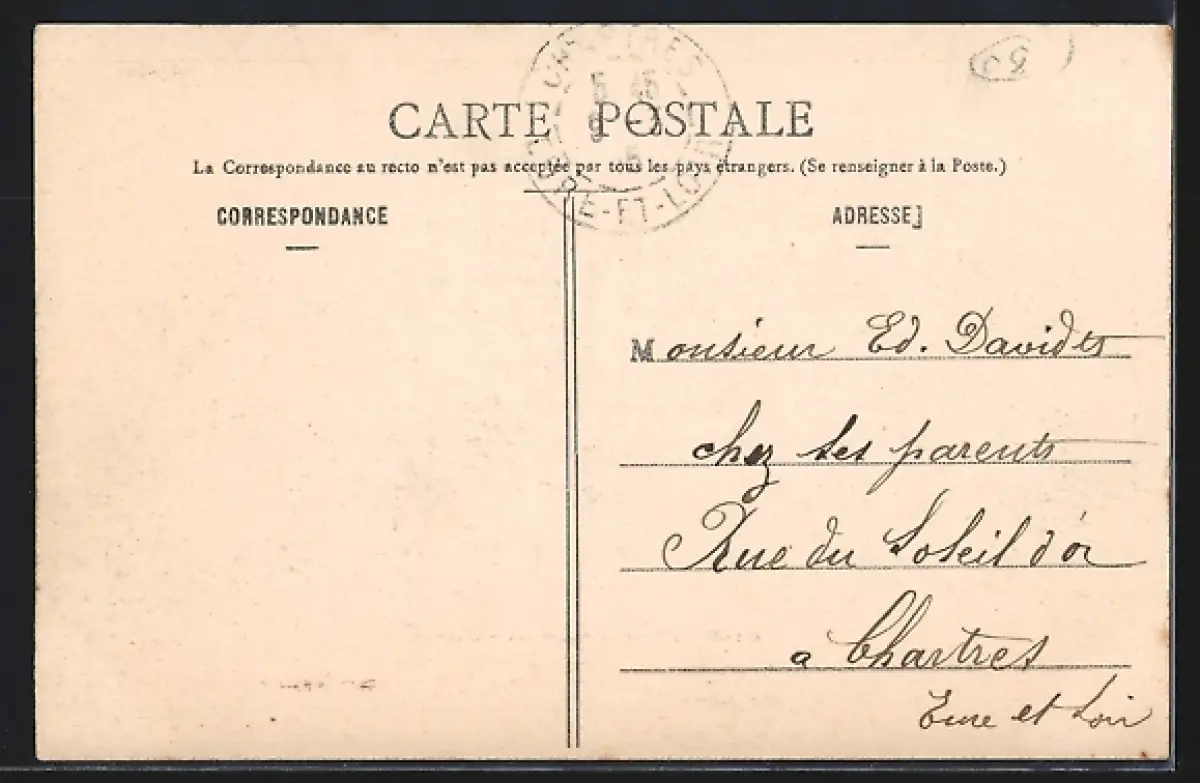 CARTE POSTALE
La Correspondance au recto n'est pas acceptée par tous les pays étrangers. (Se renseigner à la Poste.)
CORRESPONDANCE
ADRESSE
Monsieur Ed. Davidts
chez ses parents
Rue du Soleil d'or
a Chartres
Eure et Loir
EURE-ET-LOIR